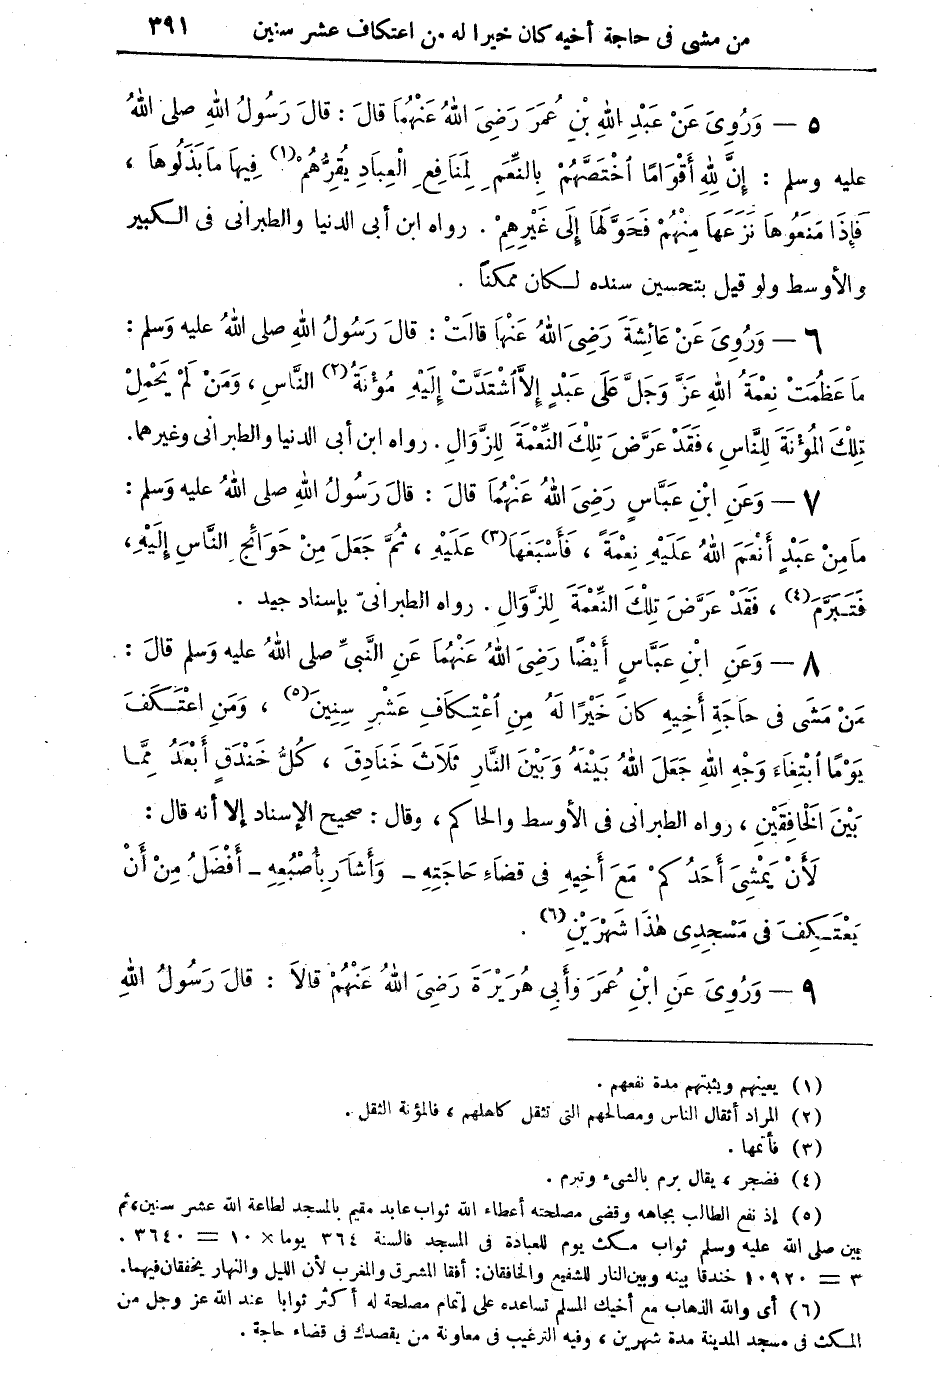 من مشى فى حاجة أخيه كان خيرا له من اعتكاف عشر سنين ٣٩١
٥ — وَرُوِىَ عَنْ عَبْدِ اللهِ بْنِ عُمَرَ رَضِىَ اللهُ عَنْهُمَا قالَ : قالَ رَسُولُ اللهِ صلى اللهُ
عليه وسلم : إِنَّ لِلهِ أَقْوَامًا اخْتَصَّهُمْ بِالنِّعَمِ لِمَنافِعِ الْعِبَادِ يُقِرُّهُمْ(١) فِيهَا مَابَذَلُوهَا ،
فَإِذَا مَنَعُوهَا نَزَعَهَا مِنْهُمْ فَحَوَّلَهَا إِلَى غَيْرِهِمْ . رواه ابن أبى الدنيا والطبرانى فى الكبير
والأوسط ولو قيل بتحسين سنده لكان ممكناً .
٦ — وَرُوِىَ عَنْ عَائِشَةَ رَضِىَ اللهُ عَنْهَا قالَتْ : قالَ رَسُولُ اللهِ صلى اللهُ عليه وَسلم :
مَا عَظُمَتْ نِعْمَةُ اللهِ عَزَّ وَجَلَّ عَلَى عَبْدٍ إِلاَّ اشْتَدَّتْ إِلَيْهِ مُؤْنَةُ(٢) النَّاسِ ، وَمَنْ لَمْ يَحْمِلْ
تِلْكَ المُؤْنَةَ لِلنَّاسِ ، فَقَدْ عَرَّضَ تِلْكَ النِّعْمَةَ لِلزَّوَالِ . رواه ابن أبى الدنيا والطبرانى وغيرهما.
٧ — وَعَنِ ابْنِ عَبَّاسٍ رَضِىَ اللهُ عَنْهُمَا قالَ : قالَ رَسُولُ اللهِ صلى اللهُ عليه وَسلم :
مَامِنْ عَبْدٍ أَنْعَمَ اللهُ عَلَيْهِ نِعْمَةً ، فَأَسْبَغَهَا(٣) عَلَيْهِ ، ثُمَّ جَعَلَ مِنْ حَوَائِجِ النَّاسِ إِلَيْهِ ،
فَتَبَرَّمَ(٤) ، فَقَدْ عَرَّضَ تِلْكَ النِّعْمَةَ لِلزَّوَالِ . رواه الطبرانىّ بإسناد جيد .
٨ — وَعَنِ ابْنِ عَبَّاسٍ أَيْضًا رَضِىَ اللهُ عَنْهُمَا عَنِ النَّبِىِّ صلى اللهُ عليه وَسلم قالَ :
مَنْ مَشَى فى حَاجَةِ أَخِيهِ كانَ خَيْرًا لَهُ مِنِ اعْتِكَافِ عَشْرِ سِنِينَ(٥) ، وَمَنِ اعْتَكَفَ
يَوْمًا ابْتِغَاءَ وَجْهِ اللهِ جَعَلَ اللهُ بَيْنَهُ وَبَيْنَ النَّارِ ثَلاَثَ خَنَادِقَ ، كُلُّ خَنْدَقٍ أَبْعَدُ مِمَّا
بَيْنَ الْخَافِقَيْنِ ، رواه الطبرانى فى الأوسط والحاكم ، وقال : صحيح الإسناد إلا أنه قال :
لَأَنْ يَمْشِىَ أَحَدُكُمْ مَعَ أَخِيهِ فى قضَاءِ حَاجَتِهِ — وَأَشَارَ بِأُصْبُعِهِ — أَفْضَلُ مِنْ أَنْ
يَعْتَكِفَ فى مَسْجِدِى هٰذَا شَهْرَيْنِ(٦) .
٩ — وَرُوِىَ عَنِ ابْنِ عُمَرَ وَأَبِى هُرَيْرَةَ رَضِىَ اللهُ عَنْهُمْ قالاَ : قالَ رَسُولُ اللهِ
(١) يعينهم ويثبتهم مدة نفعهم .
(٢) المراد أثقال الناس ومصالحهم التى تثقل كاهلهم ، فالمؤنة الثقل .
(٣) فأتمها .
(٤) فضجر ، يقال برم بالشىء وتبرم .
(٥) إذ نفع الطالب بجاهه وقضى مصلحته أعطاء الله ثواب عابد مقيم بالمسجد لطاعة الله عشر سنين، ثم
بين صلى الله عليه وسلم ثواب مكث يوم للعبادة فى المسجد فالسنة ٣٦٤ يوما × ١٠ = ٣٦٤٠ .
٣ = ١٠٩٢٠ خندقا بينه وبين النار للشفيع والخافقان: أفقا المشرق والمغرب لأن الليل والنهار يخفقان فيهما.
(٦) أى والله الذهاب مع أخيك المسلم تساعده على إتمام مصلحة له أكثر ثوابا عند الله عز وجل من
المكث فى مسجد المدينة مدة شهرين ، وفيه الترغيب فى معاونة من يقصدك فى قضاء حاجة .